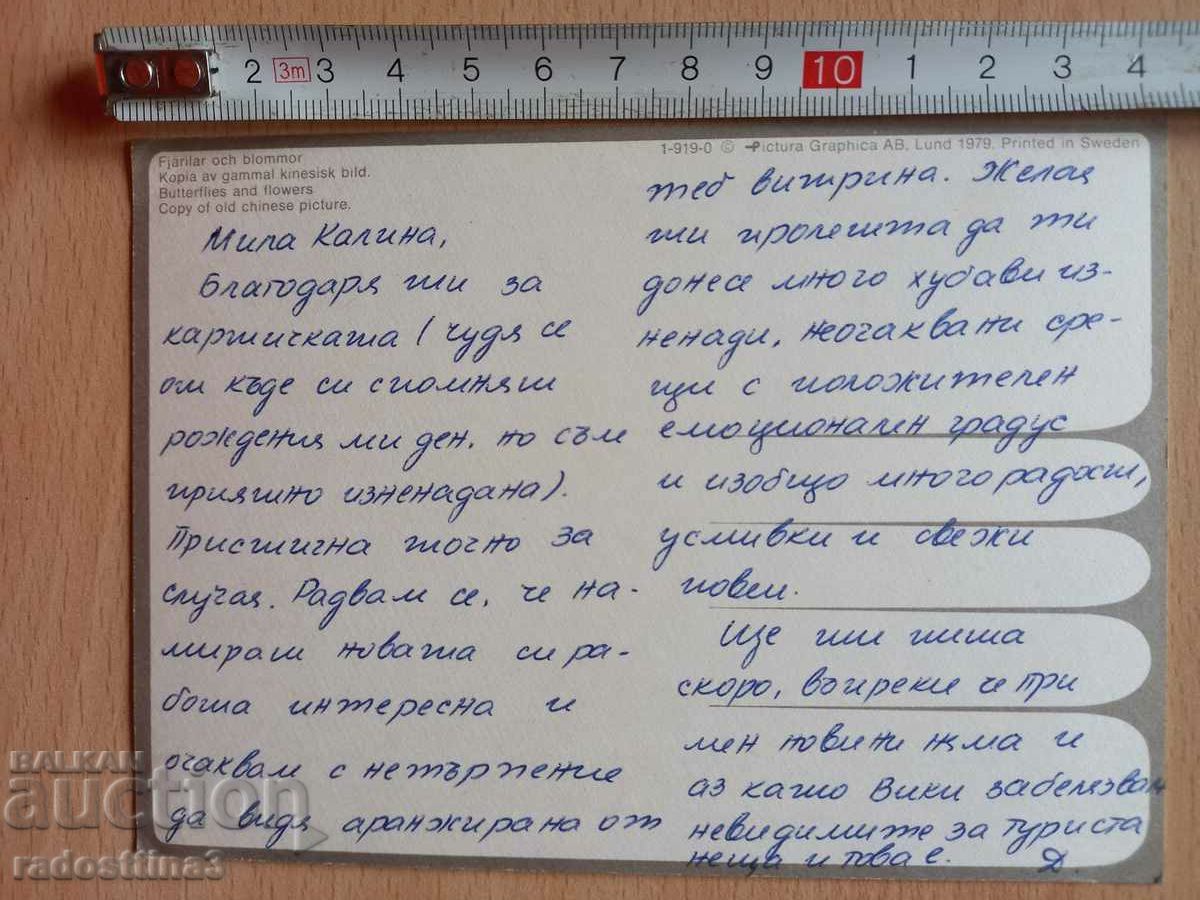 2 3m 3 4 5 6 7 8 9 10 1 2 3 4
Fjärilar och blommor
Kopia av gammal kinesisk bild.
Butterflies and flowers
Copy of old chinese picture.
1-919-0 © Pictura Graphica AB, Lund 1979. Printed in Sweden
Мила Калина,
Благодаря ти за
картичката (чудя се
от къде си спомняш
рождения ми ден, но съм
приятно изненадана).
Пристигна точно за
случая. Радвам се, че на-
мираш новата си ра-
бота интересна и
очаквам с нетърпение
да видя аранжирана от
теб витрина. Желая
ти пролетта да ти
донесе много хубави из-
ненади, неочаквани сре-
щи с положителен
емоционален градус
и изобщо много радост,
усмивки и свежи
идеи.
Ще ти пиша
скоро, въпреки че при
мен новини няма и
аз като Вики забелязвам
невидимите за туриста
неща и това е. Д.
BALKAN
auction
radosttina3